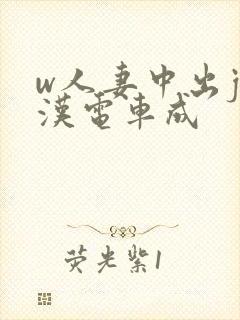 w人妻中出j
漢電車成
荧光紫1